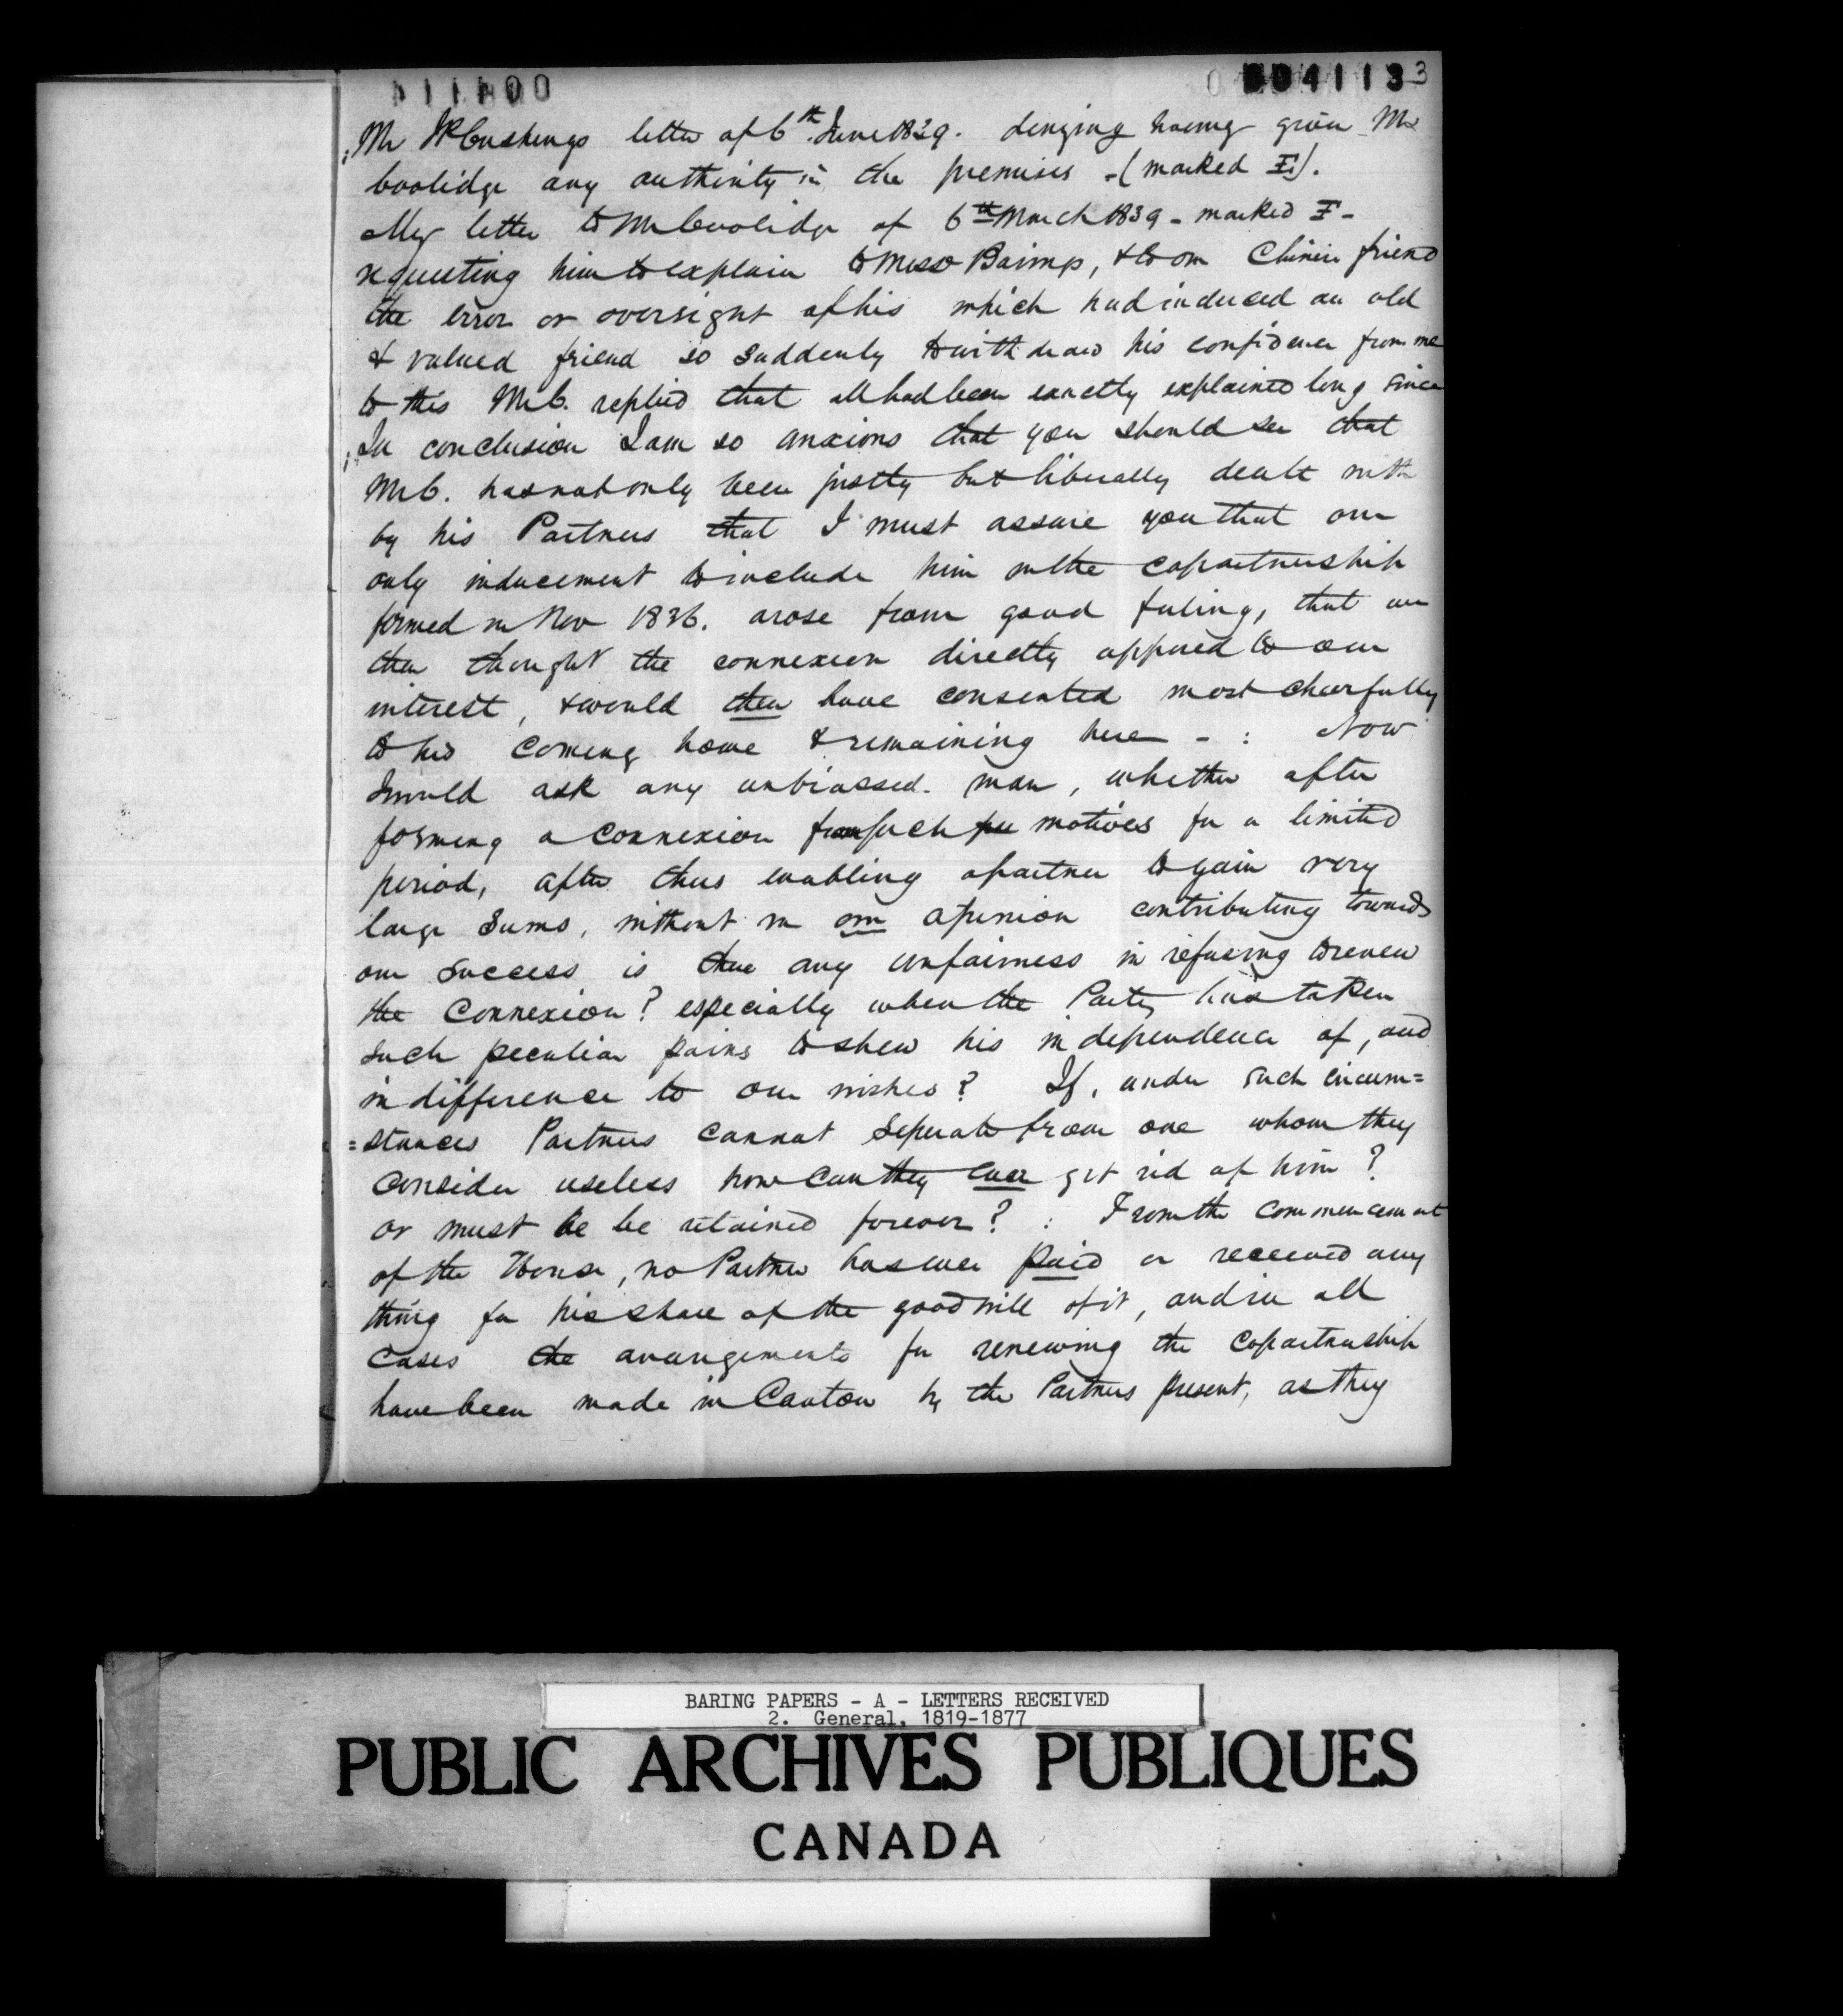 004113 3
Mr JP Cushings letter of 6th June 1839. denying having given Mr
Coolidge any authority in the premises - (marked E).
My letter to Mr Coolidge of 6th March 1839 - marked F -
requesting him to explain to Mess Barings, & to our Chinese friend
the error or oversight of his which had induced an old
& valued friend so suddenly to withdraw his confidence from me
to this Mr C. replied that all had been exactly explained long since
In conclusion I am so anxious that you should see that
Mr C. has not only been justly but liberally dealt with
by his Partners that I must assure you that our
only inducement to include him in the copartnership
formed in Nov 1836. arose from good feeling, that we
then thought the connexion directly opposed to our
interest, & would then have consented most cheerfully
to his coming home & remaining here - : Now
I would ask any unbiassed. man, whether after
forming a connexion from such motives for a limited
period, after thus enabling a partner to gain very
large sums, without in our opinion contributing towards
our success is there any unfairness in refusing to renew
the connexion? especially when the Party has taken
such peculiar pains to shew his independence of, and
indifference to our wishes? If, under such circum=
=stances Partners cannot seperate from one whom they
consider useless how can they ever get rid of him?
or must he be retained forever? : From the commencement
of the House, no Partner has ever paid or received any
thing for his share of the goodwill of it, and in all
cases the arrangements for renewing the copartnership
have been made in Canton by the Partners present, as they
BARING PAPERS - A - LETTERS RECEIVED
2. General, 1819-1877
PUBLIC ARCHIVES PUBLIQUES
CANADA